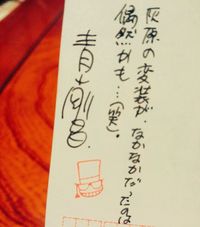 灰原の変装が、なかなかなかったのは
偶然かも…(笑)。
青山剛昌